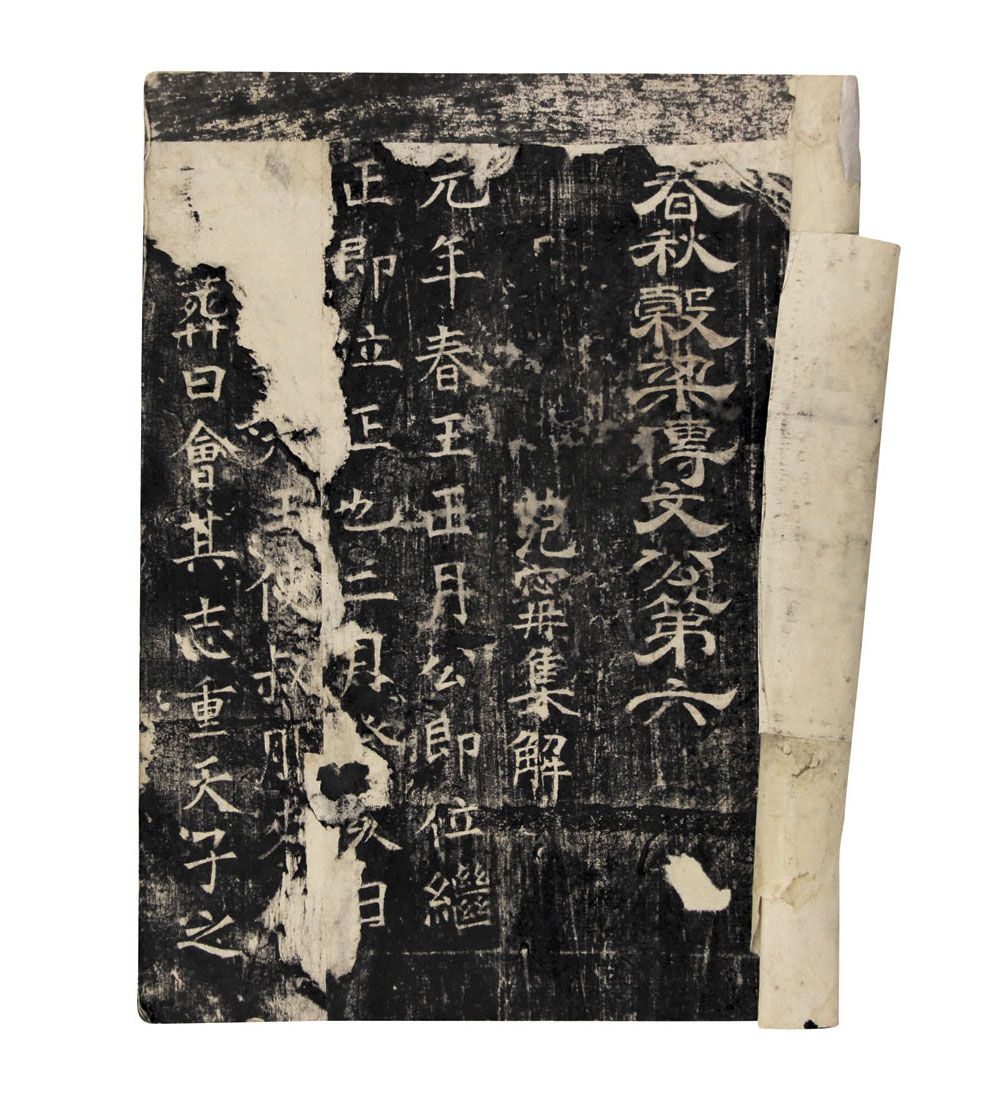 春秋穀梁傳文公第六
范甯集解
元年春王正月公即位繼
正即位正也二月癸亥日
天王使叔服來
葬曰會其志重天子之